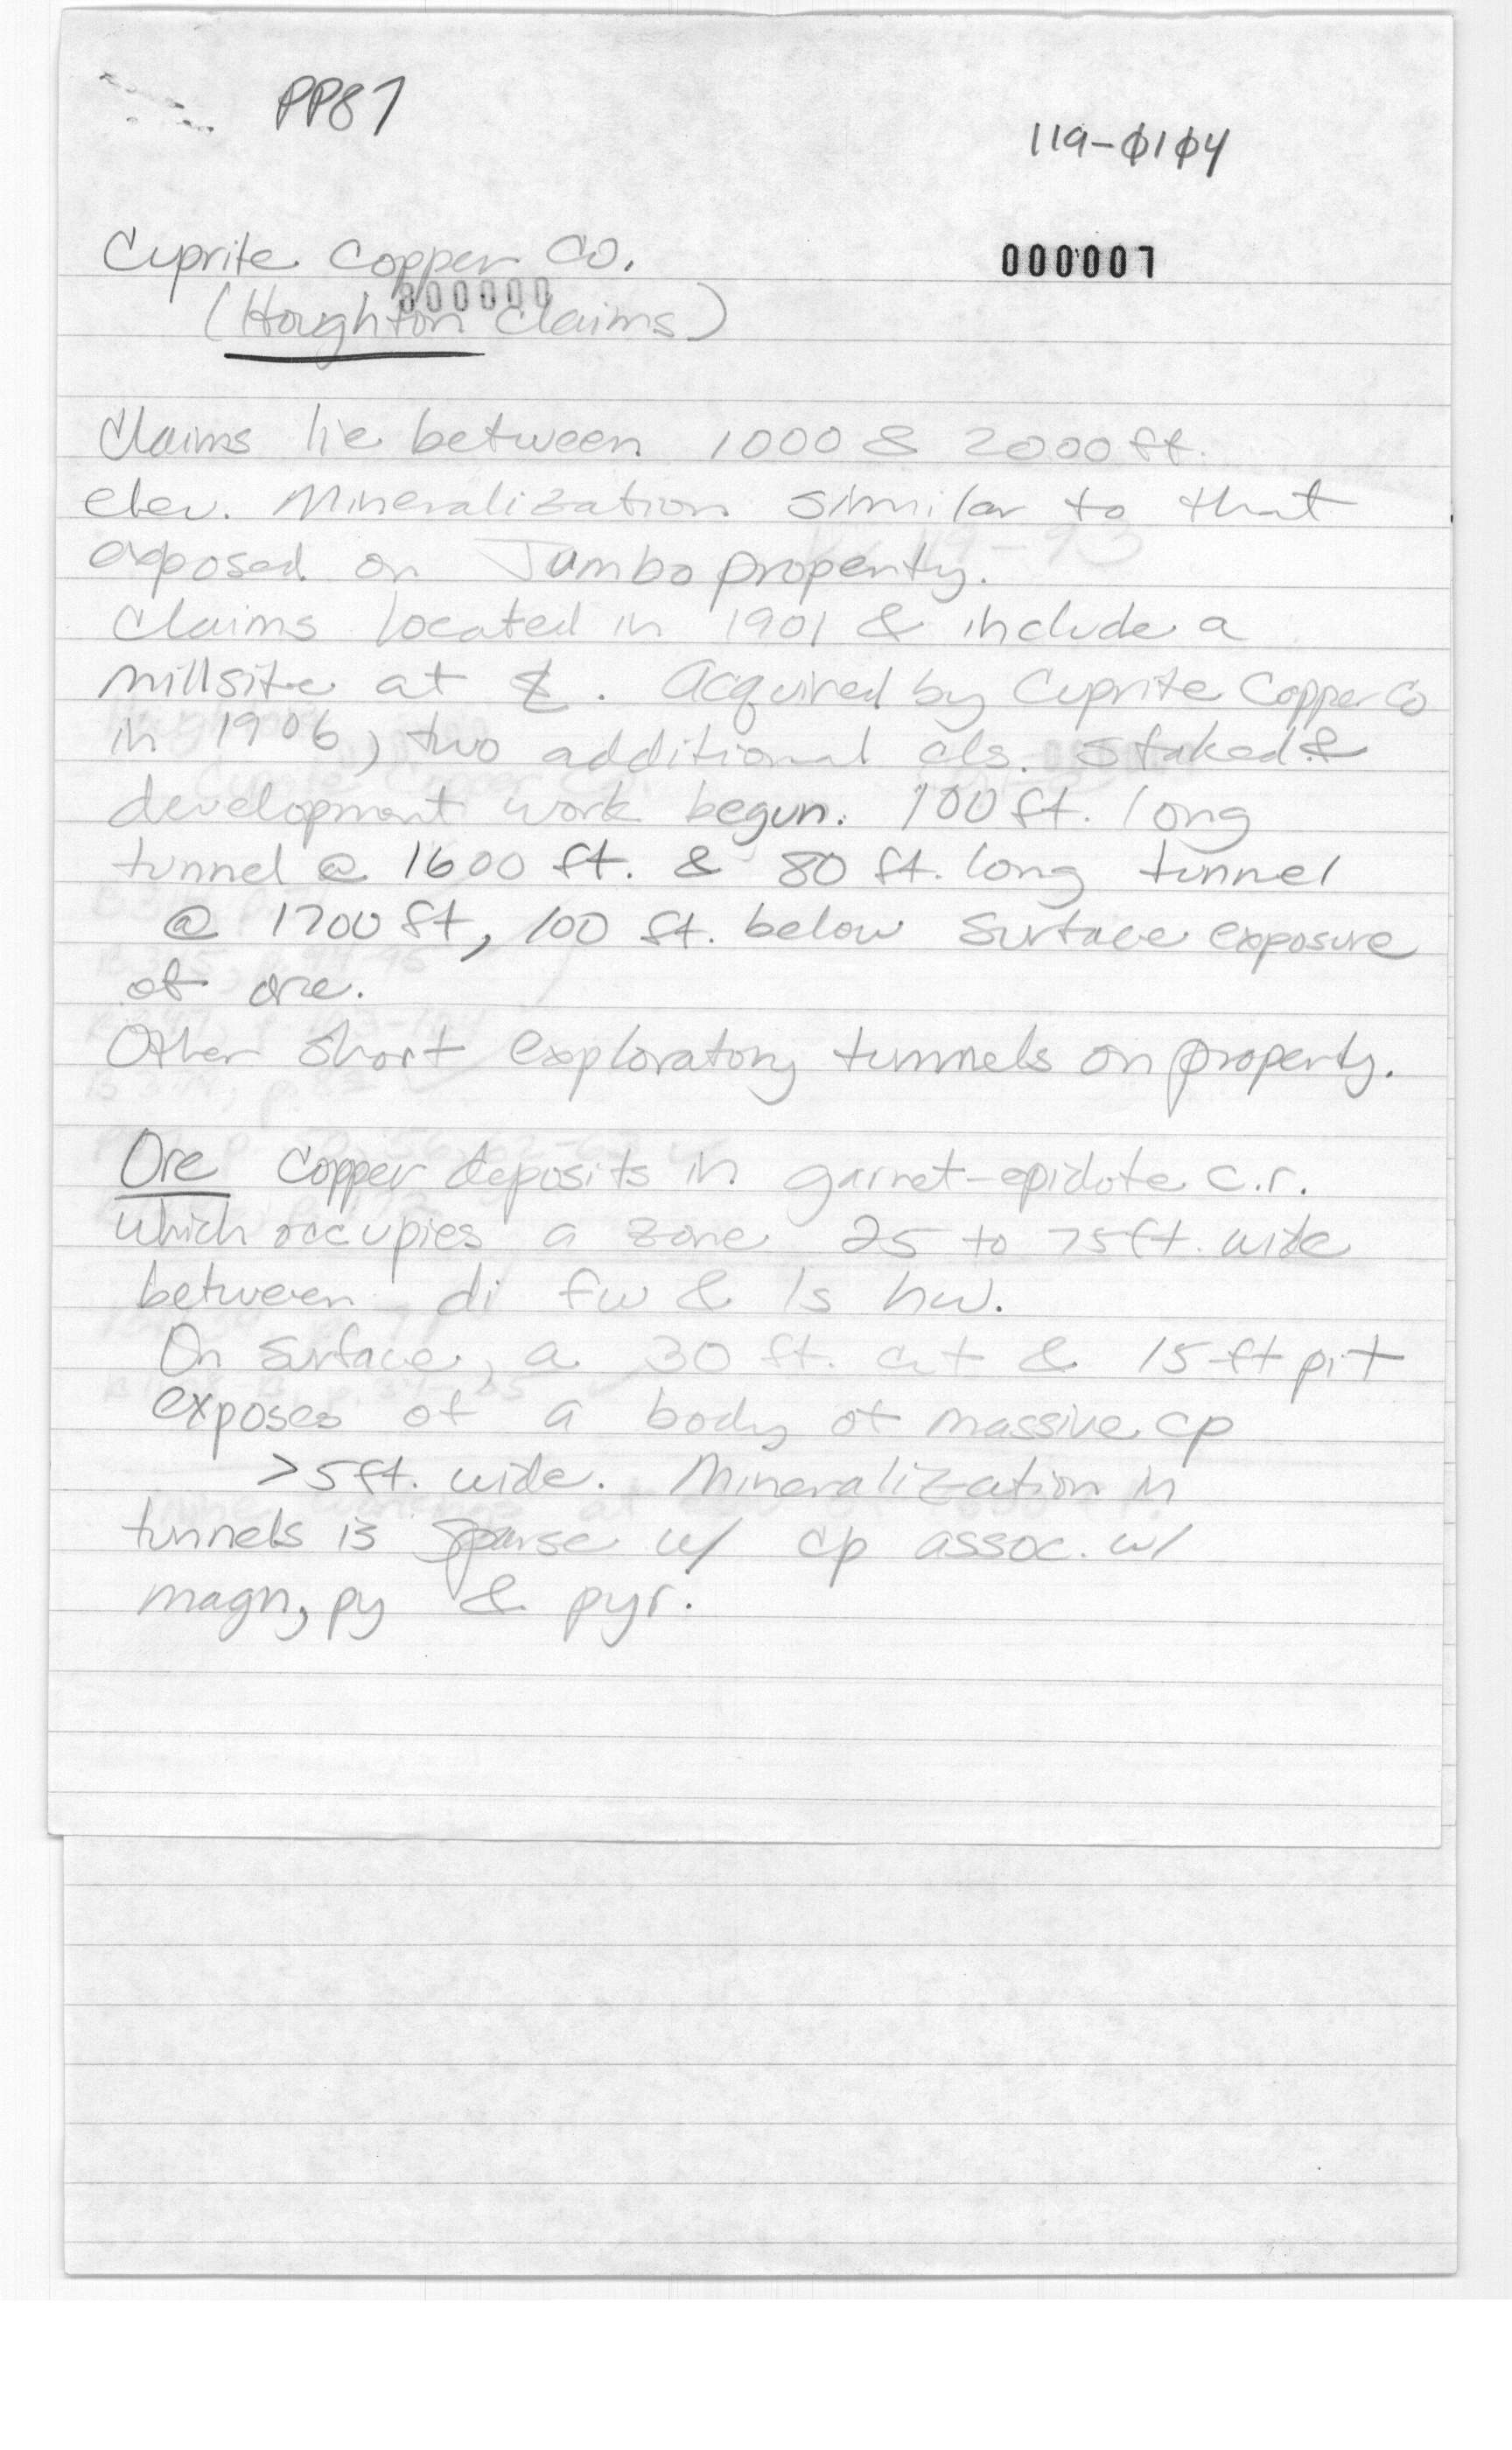 PP87
119-0104
Cuprite Copper Co.
000007
000000
(Houghton Claims)
Claims lie between 1000 & 2000 ft.
elev. Mineralization similar to that
exposed on Jumbo property.
Claims located in 1901 & include a
millsite at . Acquired by Cuprite Copper Co
in 1906, two additional cls. staked &
development work begun. 100 ft. long
tunnel @ 1600 ft. & 80 ft. long tunnel
@ 1700 ft, 100 ft. below surface exposure
of ore.
Other short exploratory tunnels on property.
Ore Copper deposits in garnet-epidote c.r.
which occupies a zone 25 to 75 ft. wide
between di fw & ls hw.
On surface, a 30 ft. cut & 15 ft pit
exposes of a body of massive cp
>5 ft. wide. Mineralization in
tunnels is sparse w/ cp assoc. w/
magn, py & pyr.